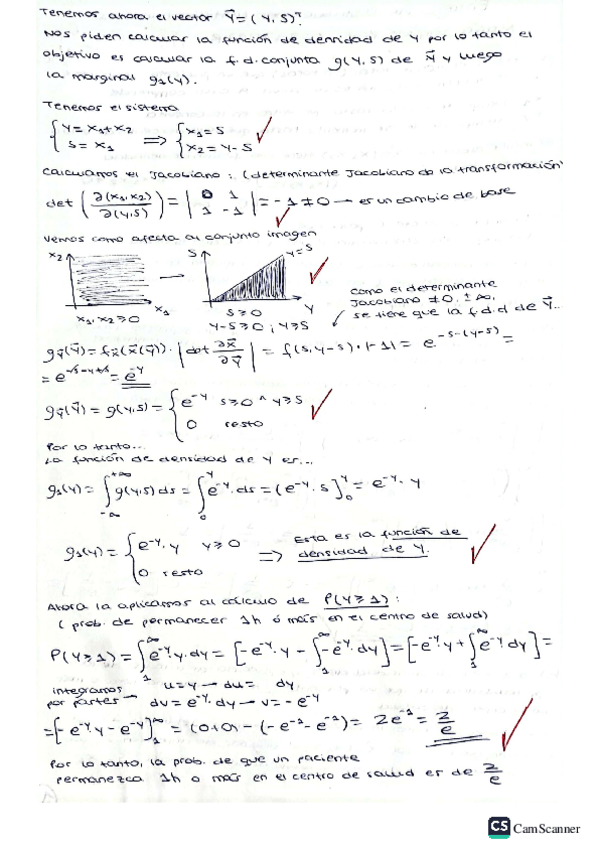 Tenemos ahora el vector Y⃗=(Y,S)ᵗ
Nos piden calcular la función de densidad de Y por lo tanto el
objetivo es calcular la f.d. conjunta g(Y,S) de Y⃗ y luego
la marginal g₁(y).
Tenemos el sistema
{ Y = X₁+X₂   S = X₁ ⟹ { X₁ = S   X₂ = Y-S
Calculamos el Jacobiano: (determinante Jacobiano de la transformación)
det (∂(X₁,X₂)/∂(Y,S)) = |0 1   1 -1| = -1 ≠ 0 → es un cambio de base
Vemos como afecta al conjunto imagen
X₂ X₁ → S Y Y=S
X₁, X₂ ≥ 0
S ≥ 0
Y-S ≥ 0 ; Y ≥ S
Como el determinante
Jacobiano ≠ 0, ± ∞,
se tiene que la f.d.d de Y⃗...
g_Y⃗(Y⃗) = f_X⃗(X⃗(Y⃗)) · |det ∂X⃗/∂Y⃗| = f(s,y-s) · |-1| = e^{-s-(y-s)} =
= e^{-s-y+s} = e^{-y}
g_Y⃗(Y⃗) = g(y,s) = { e^{-y}   s≥0 ^ y≥s
0   resto
Por lo tanto...
La función de densidad de Y es...
g₁(y) = ∫_{-∞}^{+∞} g(y,s) ds = ∫_0^y e^{-y} · ds = (e^{-y} · s]_0^y = e^{-y} · y
g₁(y) = { e^{-y} · y   y ≥ 0
0   resto
⟹ Esta es la función de
densidad de Y.
Ahora la aplicamos al cálculo de P(Y≥1):
(prob. de permanecer 1h ó más en el centro de salud)
P(Y≥1) = ∫_1^∞ e^{-y} · y · dy = [-e^{-y} · y - ∫_1^∞ -e^{-y} · dy] = [-e^{-y} · y + ∫_1^∞ e^{-y} dy] =
integramos
por partes → u = y → du = dy
dv = e^{-y} · dy → v = -e^{-y}
= [-e^{-y} · y - e^{-y}]_1^∞ = (0+0) - (-e^{-1} - e^{-1}) = 2e^{-1} = 2/e
Por lo tanto, la prob. de que un paciente
permanezca 1h o más en el centro de salud es de 2/e
CS CamScanner